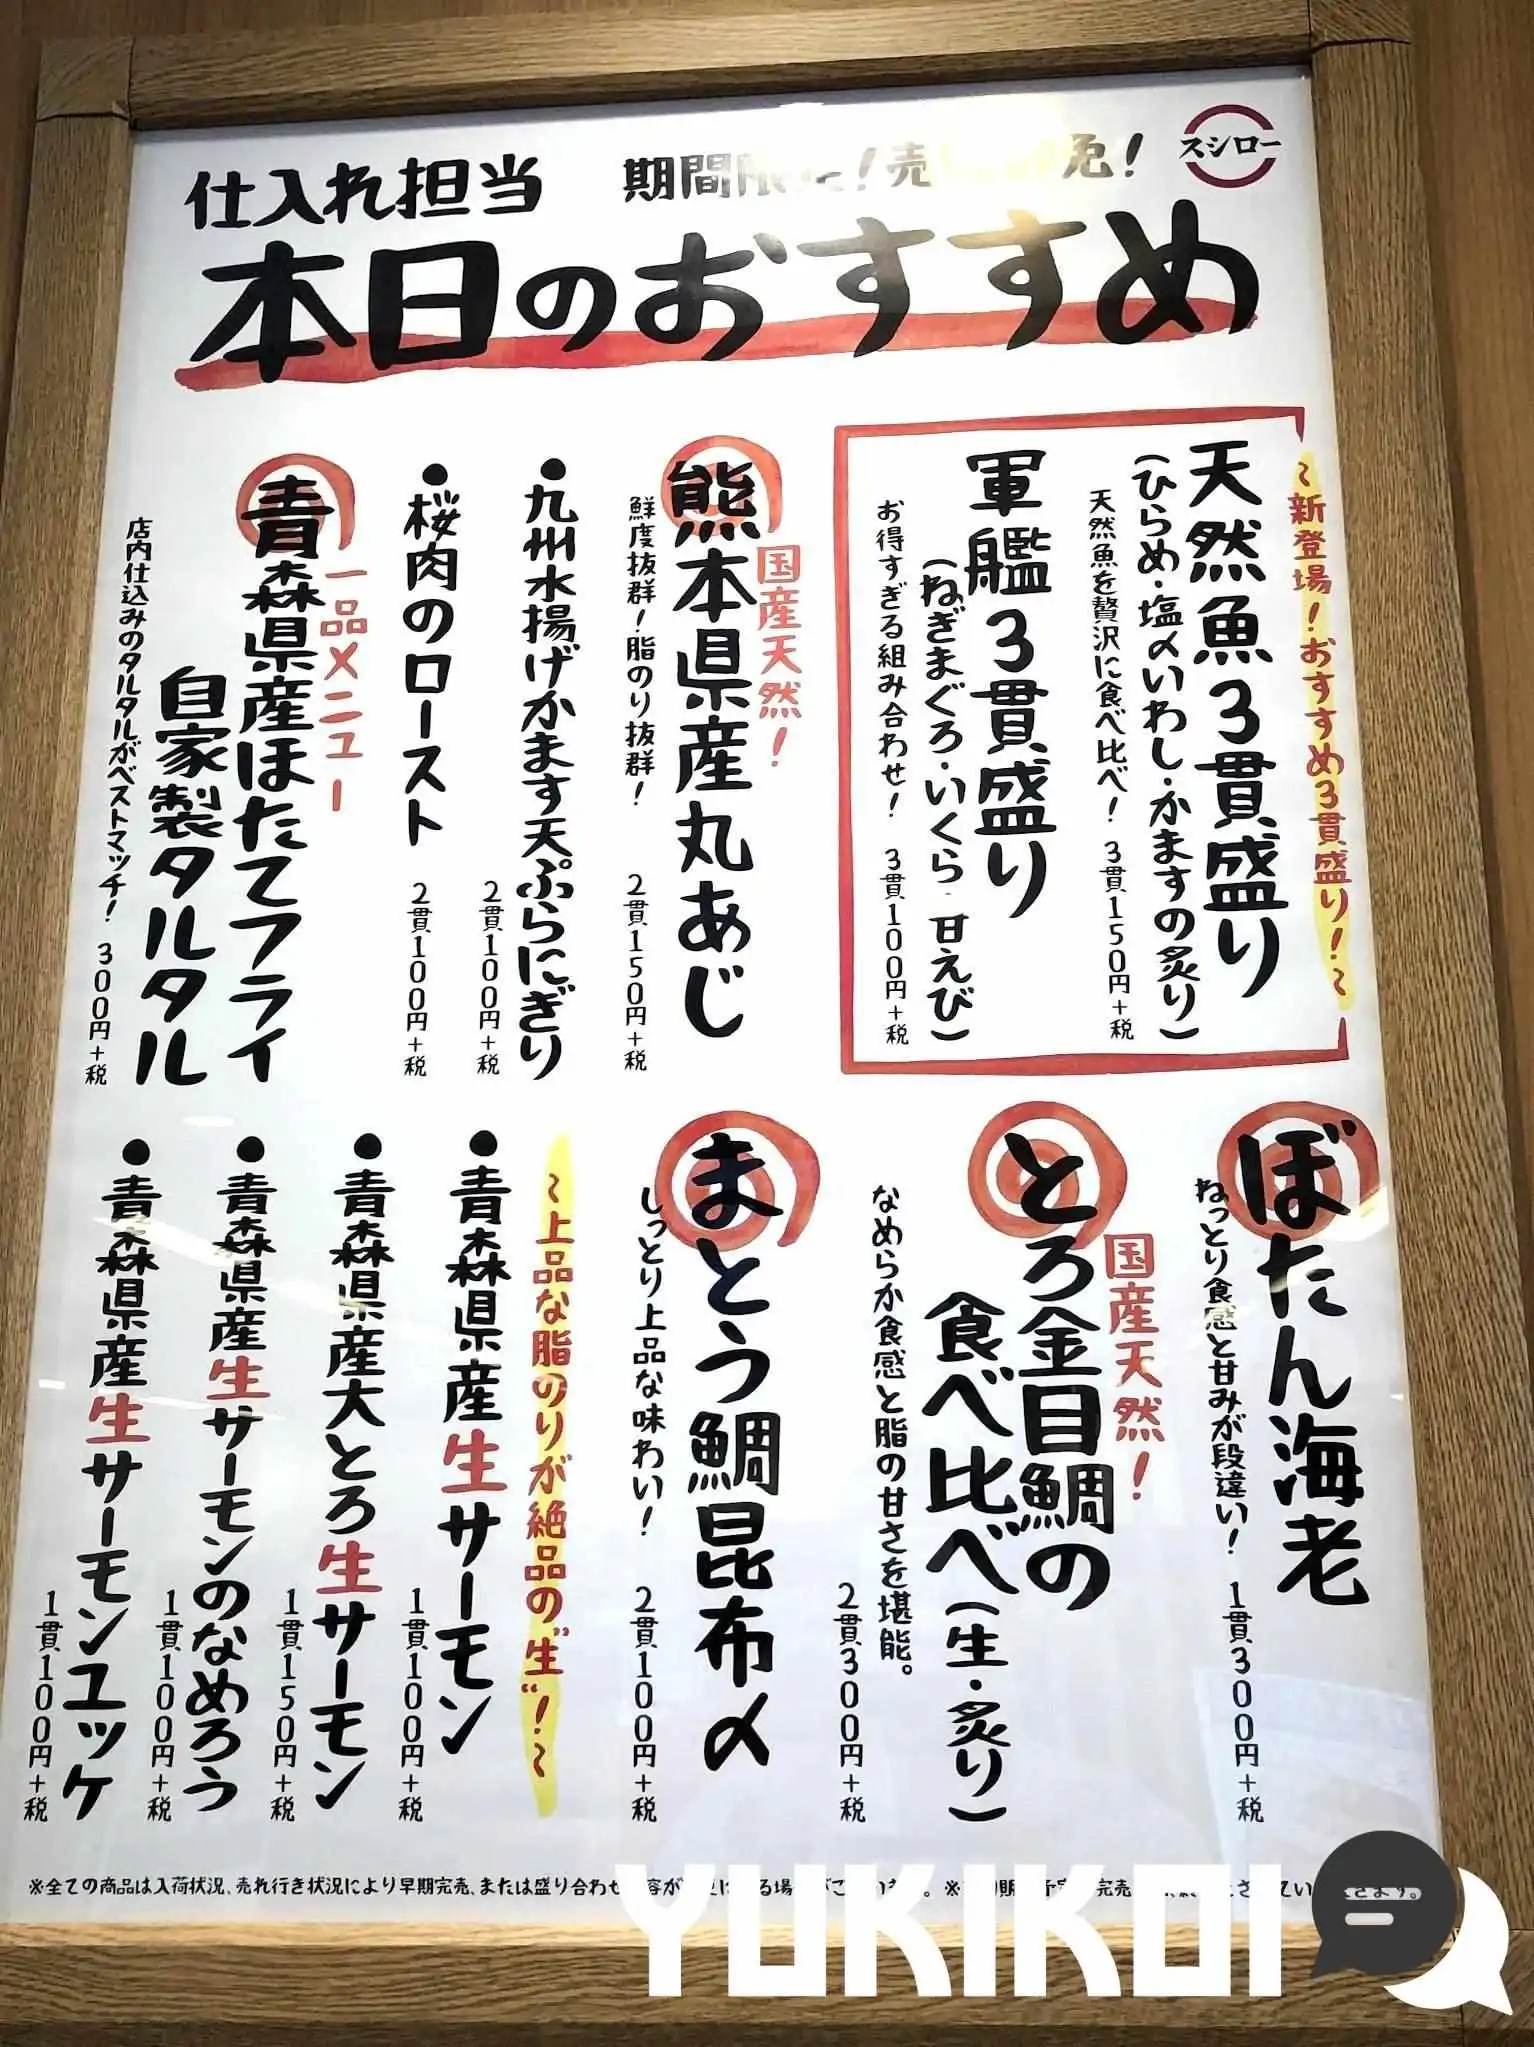 スシロー
仕入れ担当
期間
売
本日のおすすめ
~新登場!おすすめ3貫盛り!~
天然魚3貫盛り
(ひらめ・塩〆いわし・かますの炙り)
天然魚を贅沢に食べ比べ! 3貫150円+税
軍艦3貫盛り
(ねぎまぐろ・いくら・甘えび)
お得すぎる組み合わせ! 3貫100円+税
国産天然!
熊本県産丸あじ
鮮度抜群!脂のり抜群! 2貫150円+税
●九州水揚げかます天ぷらにぎり
2貫100円+税
●桜肉のロースト
2貫100円+税
一品メニュー
青森県産ほたてフライ
自家製タルタル
店内仕込みのタルタルがベストマッチ! 300円+税
ぼたん海老
ねっとり食感と甘みが段違い! 1貫300円+税
国産天然!
とろ金目鯛の
食べ比べ(生・炙り)
なめらか食感と脂の甘さを堪能。
2貫300円+税
まとう鯛昆布〆
しっとり上品な味わい! 2貫100円+税
~上品な脂のりが絶品の"生"!~
●青森県産生サーモン
1貫100円+税
●青森県産大とろ生サーモン
1貫150円+税
●青森県産生サーモンのなめろう
1貫100円+税
●青森県産生サーモンユッケ
1貫100円+税
※全ての商品は入荷状況、売れ行き状況により早期完売、または盛り合わせ
YUKIKOI